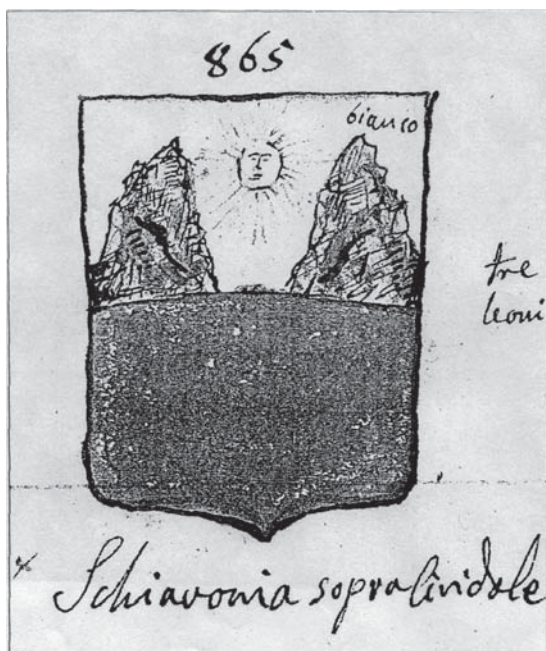 865
bianco
tre
leoni
Schiavonia sopra Cividale